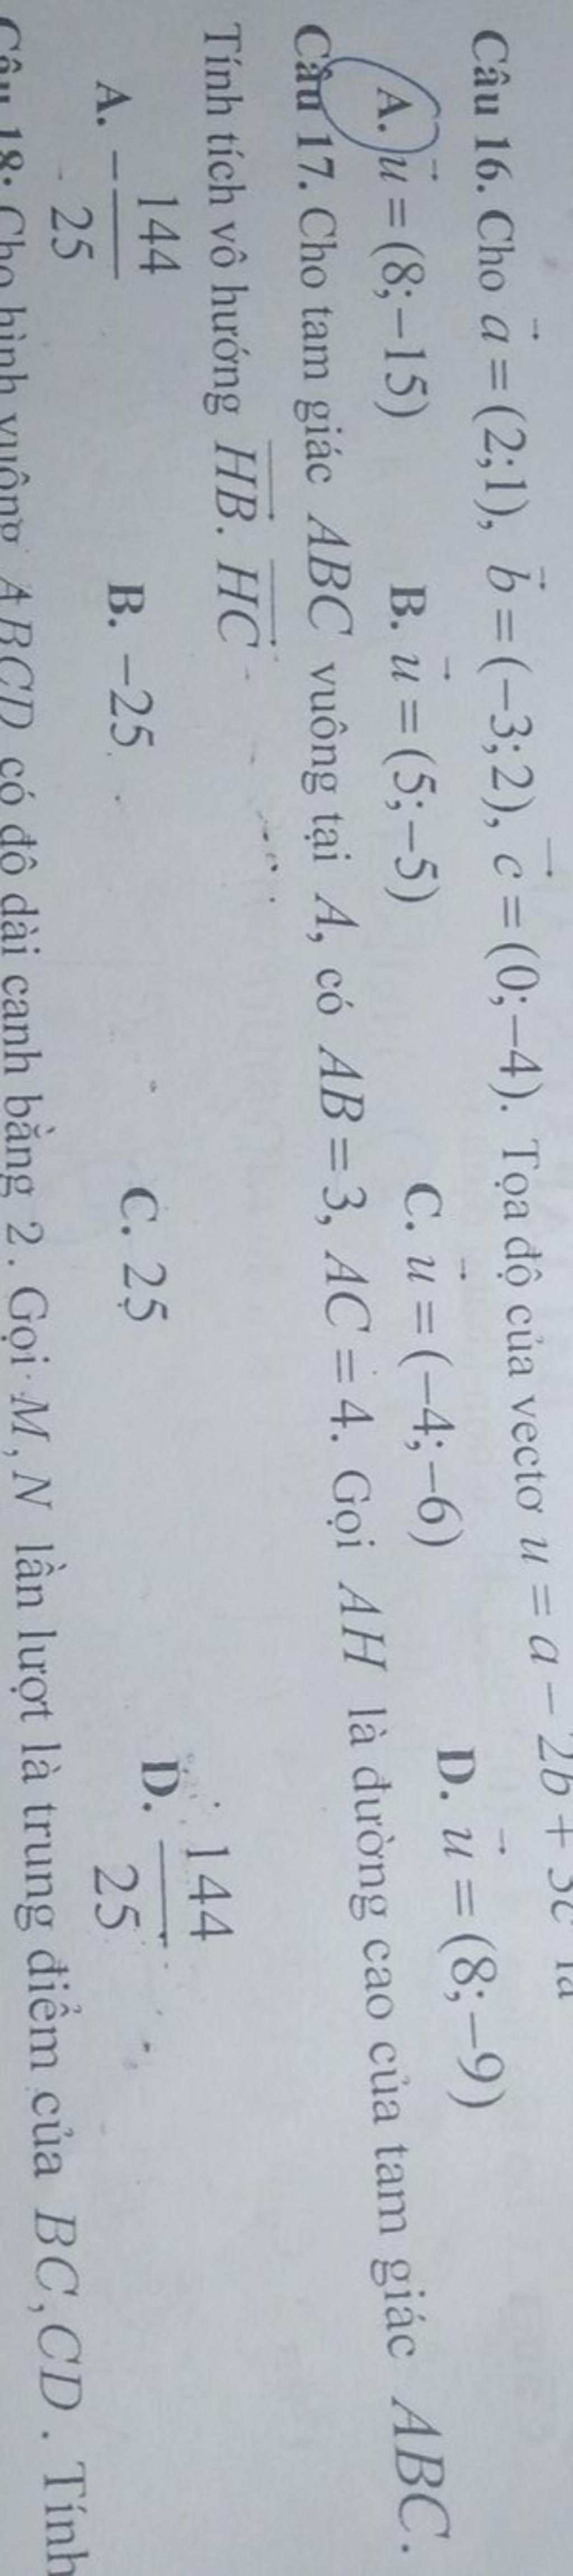 Câu 16. Cho a⃗ = (2;1), b⃗ = (−3;2), c⃗ = (0;−4). Tọa độ của vectơ u = a − 2b +
A. u⃗ = (8;−15) B. u⃗ = (5;−5) C. u⃗ = (−4;−6) D. u⃗ = (8;−9)
Câu 17. Cho tam giác ABC vuông tại A, có AB = 3, AC = 4. Gọi AH là đường cao của tam giác ABC.
Tính tích vô hướng HB⃗. HC⃗
A. −144/25 B. −25 C. 25 D. 144/25
Câu 18: Cho hình vuông ABCD có độ dài cạnh bằng 2. Gọi M, N lần lượt là trung điểm của BC, CD. Tính